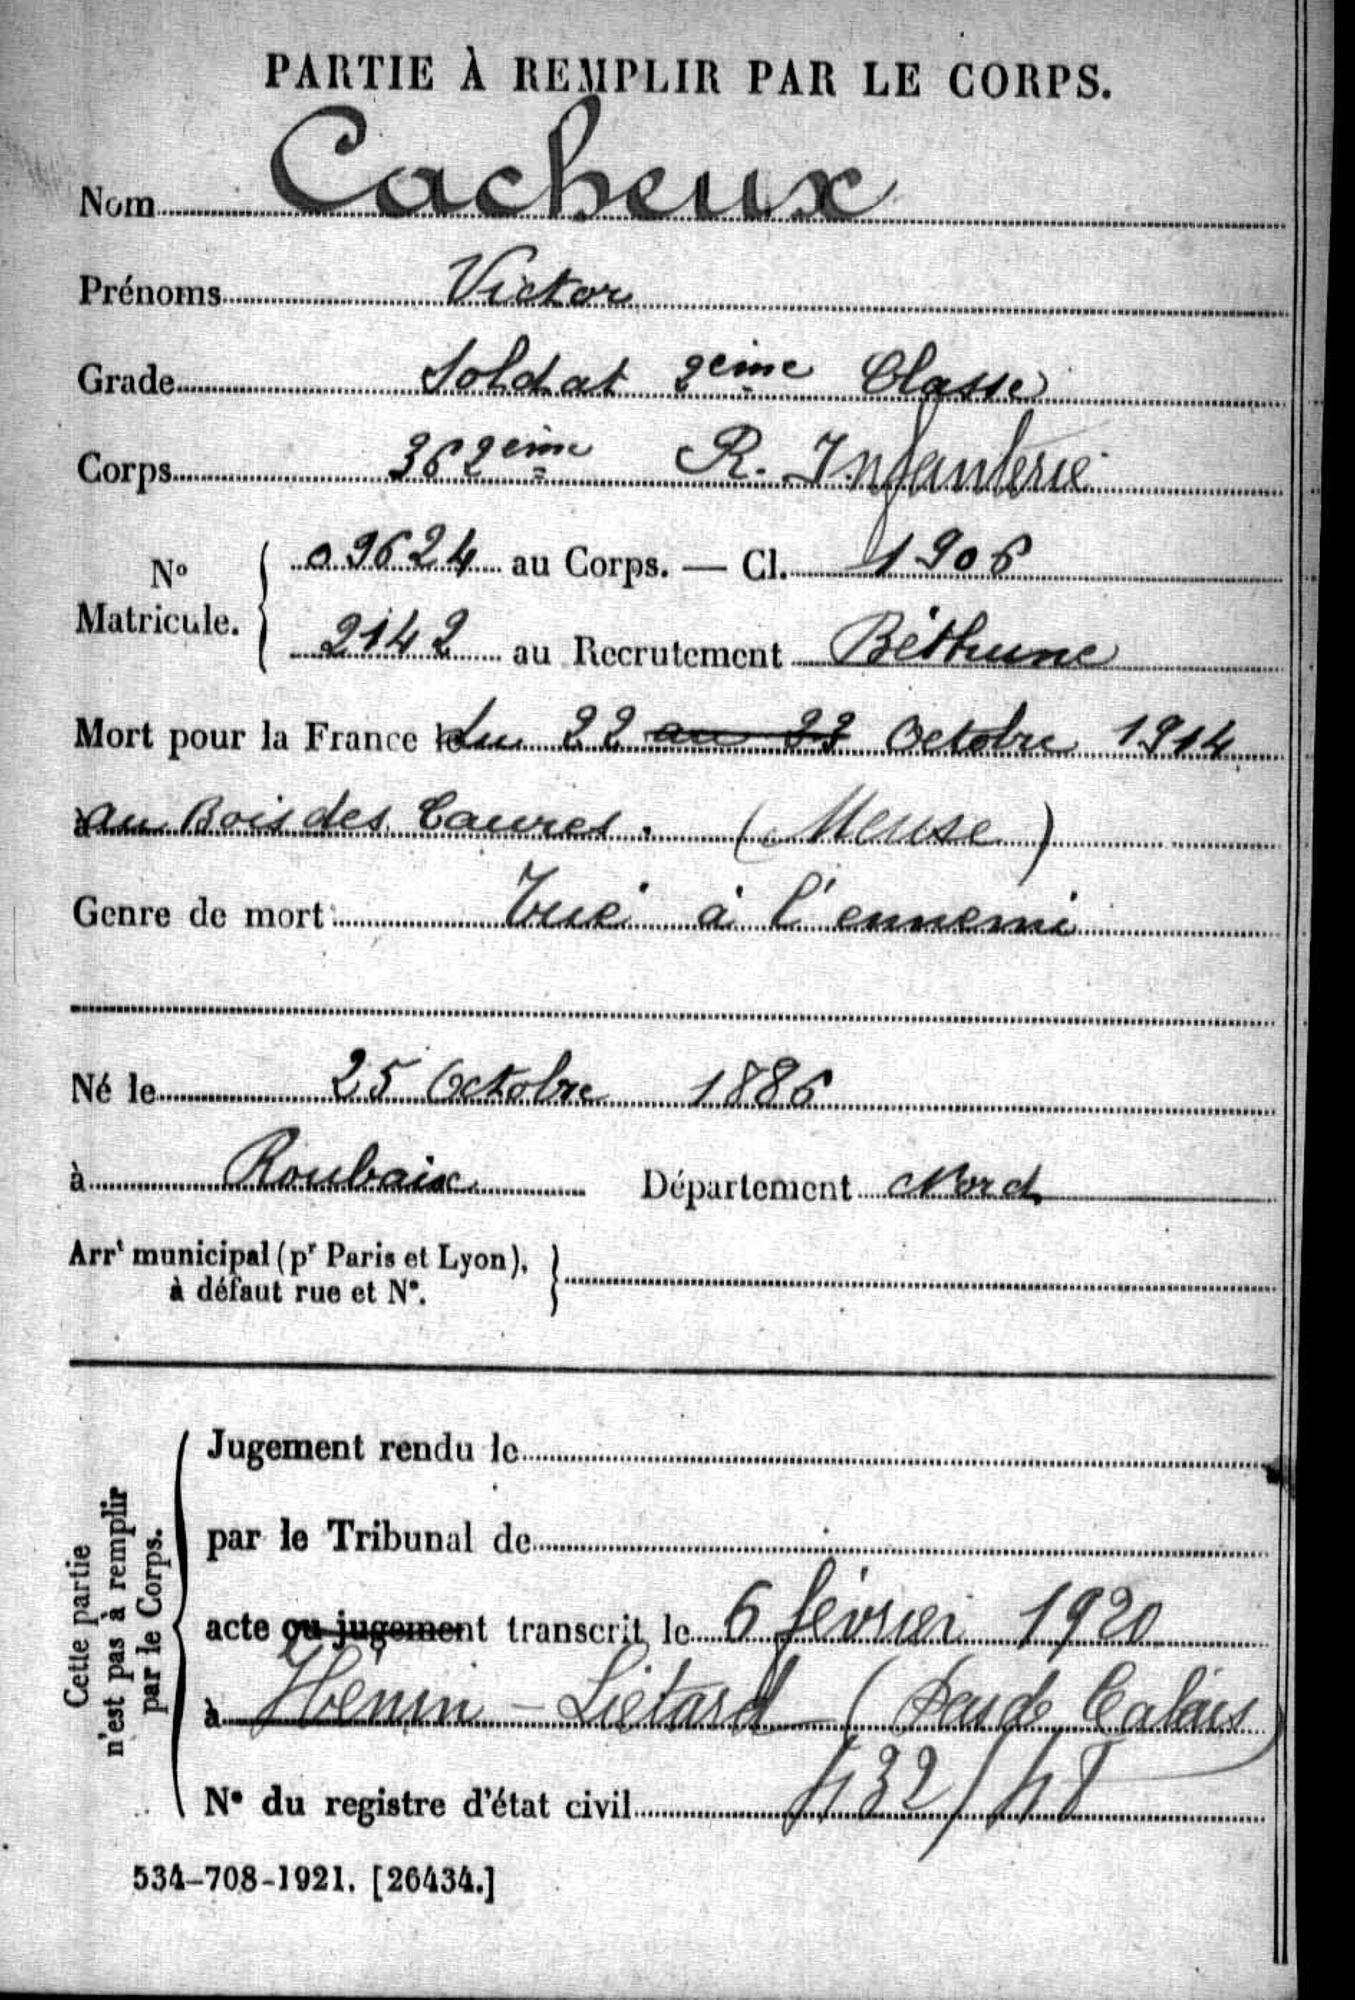 PARTIE À REMPLIR PAR LE CORPS.
Nom Cacheux
Prénoms Victor
Grade Soldat 2ème Classe
Corps 362ème R. Infanterie
No Matricule. { 09624 au Corps. — Cl. 1906
2142 au Recrutement Béthune
Mort pour la France le du 22 au 23 Octobre 1914
à au Bois des Caures. (Meuse)
Genre de mort Tué à l'ennemi
Né le 25 Octobre 1886
à Roubaix Département Nord
Arrt municipal (pr Paris et Lyon), }
à défaut rue et No.
Cette partie n'est pas à remplir par le Corps.
Jugement rendu le
par le Tribunal de
acte ou jugement transcrit le 6 février 1920
à Hénin-Liétard (Pas de Calais)
No du registre d'état civil 432/48
534-708-1921. [26434.]